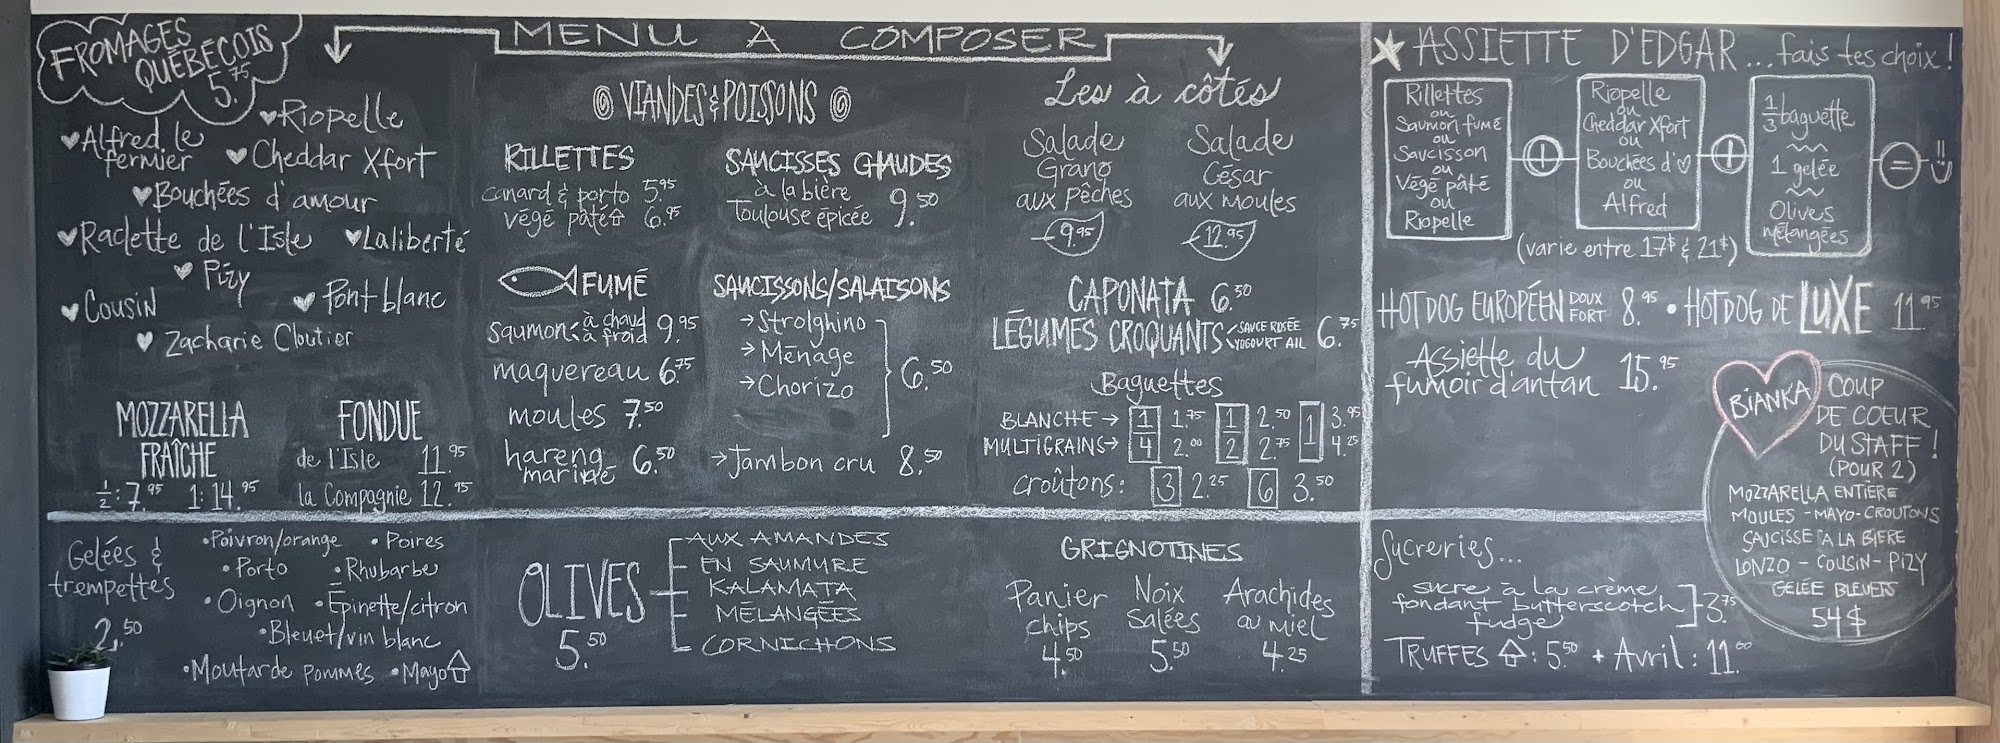 FROMAGES
QUÉBÉCOIS
5.75
♥Riopelle
♥Alfred le
fermier
♥Cheddar Xfort
♥Bouchées d'amour
♥Raclette de l'Isle
♥Laliberté
♥Pizy
♥Cousin
♥Pont blanc
♥Zacharie Cloutier
MOZZARELLA
FRAÎCHE
1/2: 7.95 1: 14.95
FONDUE
de l'Isle 11.95
la Compagnie 12.95
MENU À COMPOSER
VIANDES & POISSONS
RILLETTES
canard & porto 5.95
végé pâté 6.95
SAUCISSES CHAUDES
à la bière
Toulouse épicée 9.50
FUMÉ
saumon à chaud
à froid 9.95
maquereau 6.75
moules 7.50
hareng
mariné 6.50
SAUCISSONS/SALAISONS
→Strolghino
→Ménage
→Chorizo
6.50
→Jambon cru 8.50
Les à côtés
Salade
Grano
aux pêches
9.95
Salade
César
aux moules
12.95
CAPONATA 6.50
LÉGUMES CROQUANTS SAUCE ROSÉE
YOGOURT AIL 6.75
Baguettes
BLANCHE→ 1/4 1.75 1/2 2.50 1 3.95
MULTIGRAINS→ 2.00 2.75 4.25
croûtons: 3 2.25 6 3.50
★ ASSIETTE D'EDGAR...fais tes choix!
Rillettes
ou
Saumon fumé
ou
Saucisson
ou
Végé pâté
ou
Riopelle
+
Riopelle
ou
Cheddar Xfort
ou
Bouchées d'♡
ou
Alfred
+
1/3 baguette
1 gelée
Olives
mélangées
=
(varie entre 17$ & 21$)
HOTDOG EUROPÉEN DOUX
FORT 8.95 • HOTDOG DE LUXE 11.95
Assiette du
fumoir d'antan 15.95
BIANKA
COUP
DE COEUR
DU STAFF!
(POUR 2)
MOZZARELLA ENTIÈRE
MOULES - MAYO - CROUTONS
SAUCISSE À LA BIÈRE
LONZO - COUSIN - PIZY
GELÉE BLEUETS
54$
Gelées &
trempettes
2.50
•Poivron/orange •Poires
•Porto •Rhubarbe
•Oignon •Épinette/citron
•Bleuet/vin blanc
•Moutarde pommes •Mayo
OLIVES
5.50
AUX AMANDES
EN SAUMURE
KALAMATA
MÉLANGÉES
CORNICHONS
GRIGNOTINES
Panier
chips
4.50
Noix
Salées
5.50
Arachides
au miel
4.25
Sucreries...
sucre à la crème
fondant butterscotch
fudge
3.75
TRUFFES: 5.50 + Avril: 11.00